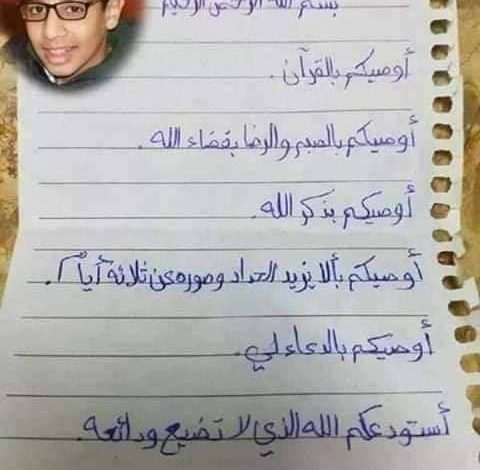 بسم الله الرحمن الرحيم
أوصيكم بالقرآن.
أوصيكم بالصبر والرضا بقضاء الله.
أوصيكم بذكر الله.
أوصيكم بألا يزيد الحداد وصوره عن ثلاثة أيام.
أوصيكم بالدعاء لي.
أستودعكم الله الذي لا تضيع ودائعه.